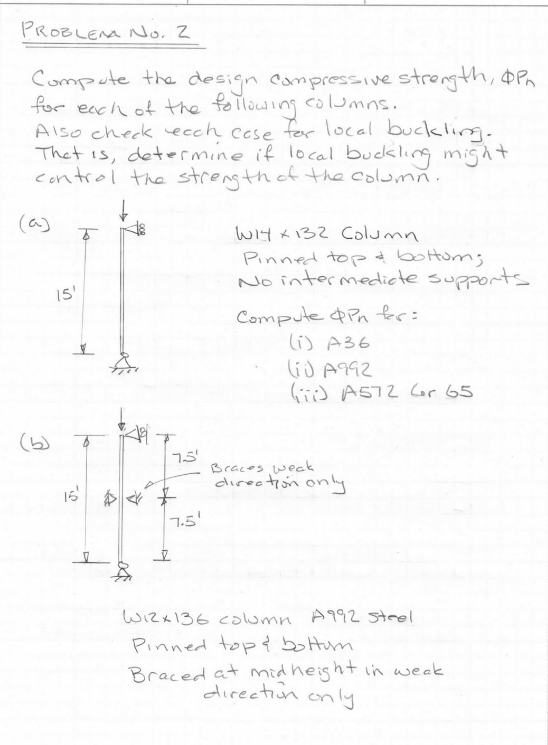 PROBLEM No. 2
Compute the design compressive strength, ΦPn
for each of the following columns.
Also check each case for local buckling.
That is, determine if local buckling might
control the strength of the column.
(a)
W14 x 132 Column
Pinned top & bottom;
No intermediate supports
15'
Compute ΦPn for:
(i) A36
(ii) A992
(iii) A572 Gr 65
(b)
7.5'
Braces weak
direction only
15'
7.5'
W12x136 column A992 steel
Pinned top & bottom
Braced at midheight in weak
direction only